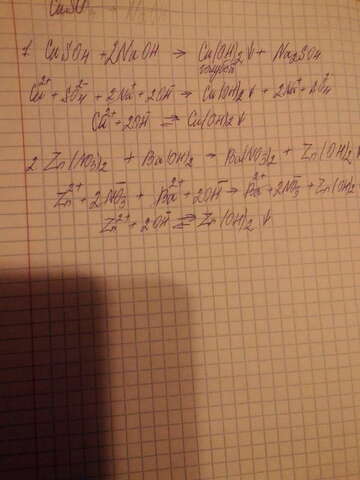 CuSO4
1. CuSO4 + 2NaOH → Cu(OH)2↓ + Na2SO4
голубой
Cu²⁺ + SO4²⁻ + 2Na⁺ + 2OH⁻ → Cu(OH)2↓ + 2Na⁺ + SO4²⁻
Cu²⁺ + 2OH⁻ ⇄ Cu(OH)2↓
2. Zn(NO3)2 + Ba(OH)2 → Ba(NO3)2 + Zn(OH)2↓
Zn²⁺ + 2NO3⁻ + Ba²⁺ + 2OH⁻ → Ba²⁺ + 2NO3⁻ + Zn(OH)2
Zn²⁺ + 2OH⁻ ⇄ Zn(OH)2↓